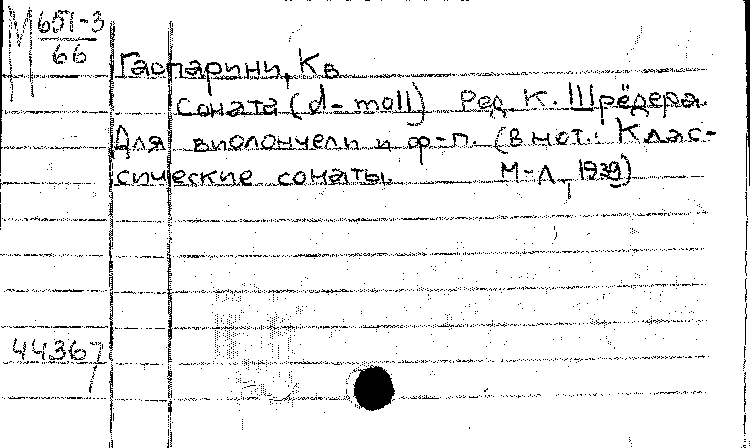 М 651-3
66
Гаспарини, Кв
Соната (d-moll) Ред. К. Шрёдера.
Для виолончели и ф-п. (В нот.: Клас-
сические сонаты. М-Л, 1939)
44367